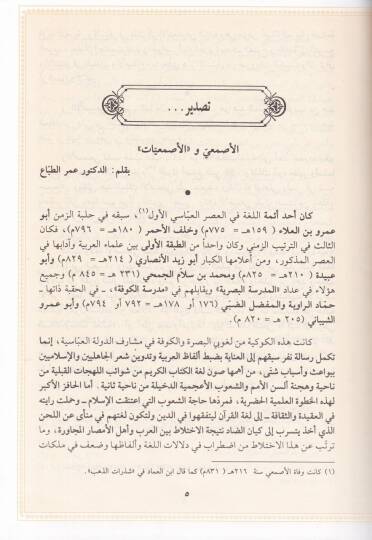 تصدير...
الأصمعيّ و «الأصمعيّات»
بقلم: الدكتور عمر الطبّاع
كان أحد أئمة اللغة في العصر العبّاسي الأول(١)، سبقه في حلبة الزمن أبو
عمرو بن العلاء (١٥٩هـ = ٧٧٥م) وخلف الأحمر (١٨٠هـ = ٧٩٦م)، فكان
الثالث في الترتيب الزمني وكان واحداً من الطبقة الأولى بين علماء العربية وآدابها في
العصر المذكور، ومن أعلامها الكبار أبو زيد الأنصاري (٢١٤هـ = ٨٢٩م) وأبو
عبيدة (٢١٠هـ = ٨٢٥م) ومحمد بن سلّام الجمحي (٢٣١هـ = ٨٤٥م) وجميع
هؤلاء في عداد «المدرسة البصرية» ويقابلهم في «مدرسة الكوفة»، - في الحقبة ذاتها -
حمّاد الراوية والمفضل الضبّي (١٧٦ أو ١٧٨هـ = ٧٩٢ أو ٧٩٤م) وأبو عمرو
الشيباني (٢٠٥هـ = ٨٢٠م).
كانت هذه الكوكبة من لغويي البصرة والكوفة في مشارف الدولة العبّاسية، إنما
تكمل رسالة نفر سبقهم إلى العناية بضبط ألفاظ العربية وتدوين شعر الجاهليين والإسلاميين
ببواعث وأسباب شتّى، من أهمها صون لغة الكتاب الكريم من شوائب اللهجات القبلية من
ناحية وهجنة ألسن الأمم والشعوب الأعجمية الدخيلة من ناحية ثانية. أما الحافز الأكبر
لهذه الخطوة العلمية الحضرية، فمردّها حاجة الشعوب التي اعتنقت الإسلام - وحملت رايته
في العقيدة والثقافة - إلى لغة القرآن ليتفقهوا في الدين ولتكون لغتهم في منأى عن اللحن
الذي أخذ يتسرب إلى كيان الضاد نتيجة الاختلاط بين العرب وأهل الأمصار المجاورة، وما
ترتّب عن هذا الاختلاط من اضطراب في دلالات اللغة وألفاظها وضعف في ملكات
(١) كانت وفاة الأصمعي سنة ٢١٦هـ (٨٣١م) كما قال ابن العماد في «شذرات الذهب».
٥